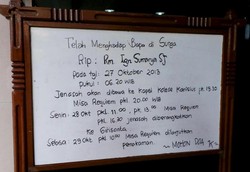 Telah Menghadap Bapa di Surga
Rip: Rm. Ign Sumarya SJ
Pada tgl: 27 Oktober 2013
Pukul: 06.20 WIB
Jenasah akan dibawa ke Kapel Kolese Kanisius jl. 19.30
Misa Requiem pkl. 20.00 WIB
Senin: 28 Okt pkl. 11.00, pkl. 13.00 Misa Requiem
pkl. 16.30 jenasah diberangkatkan
Ke Girisonta
Selasa: 29 Okt pkl. 10.00 Misa Requiem dilanjutkan
pemakaman
~ MOHON DOA